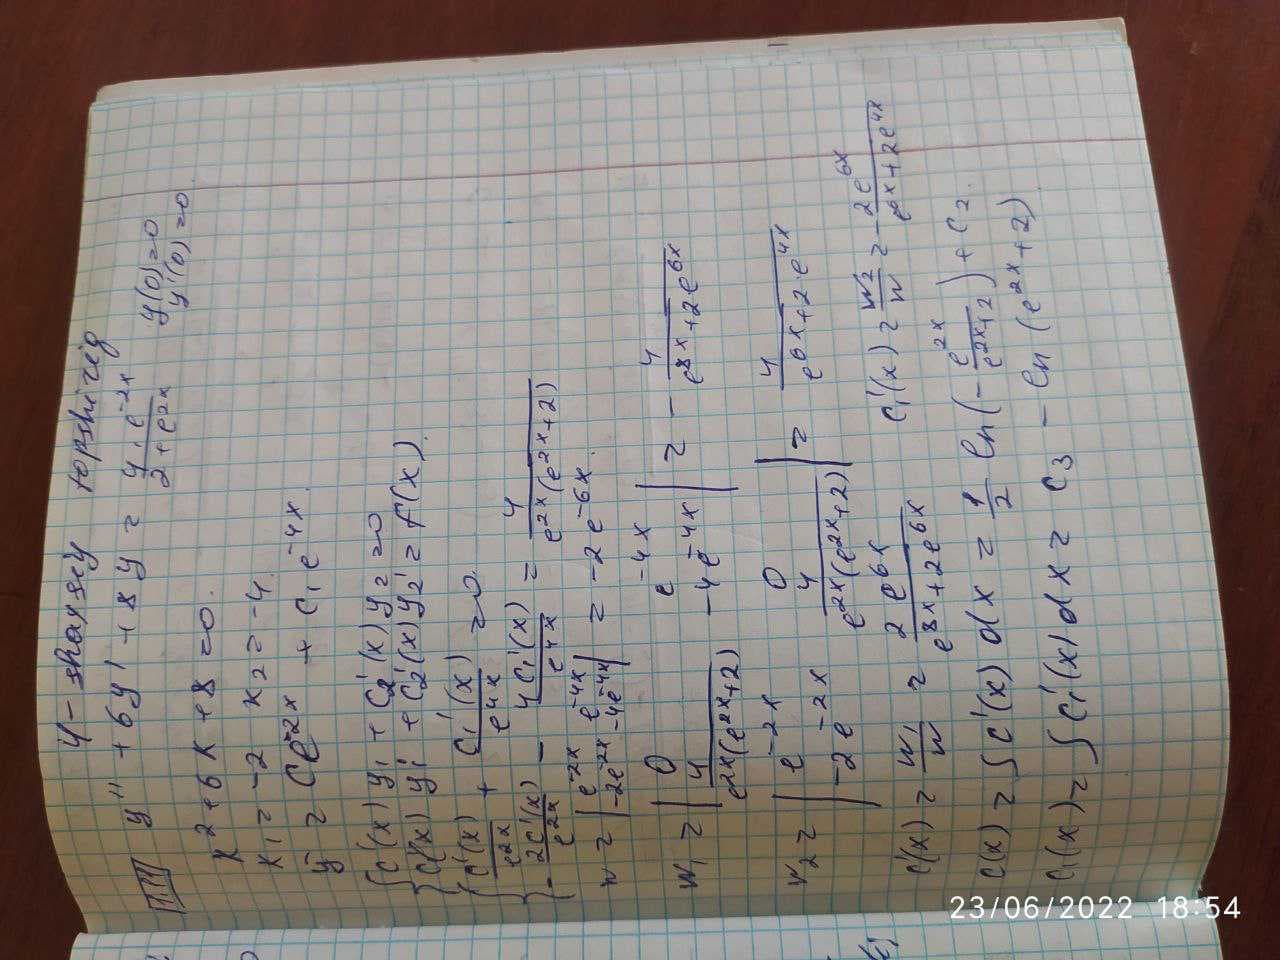 4-shaxsiy topshiriq
1.14 y'' + 6y' + 8y = 4·e^-2x / (2 + e^2x) y(0)=0
y'(0)=0.
k² + 6k + 8 = 0.
k₁ = -2 k₂ = -4.
y = Ce^-2x + C₁e^-4x.
{ C'(x)y₁ + C₂'(x)y₂ = 0
{ C'(x)y₁' + C₂'(x)y₂' = f(x).
{ C'(x)/e^2x + C₁'(x)/e^4x = 0
{ -2C'(x)/e^2x - 4C₁'(x)/e^4x = 4/(e^2x(e^2x+2))
w = | e^-2x e^-4x |
| -2e^-2x -4e^-4x | = -2e^-6x.
w₁ = | 0 e^-4x |
| 4/(e^2x(e^2x+2)) -4e^-4x | = - 4/(e^8x+2e^6x)
w₂ = | e^-2x 0 |
| -2e^-2x 4/(e^2x(e^2x+2)) | = 4/(e^6x+2·e^4x)
C'(x) = w₁/w = 2e^6x/(e^8x+2e^6x) C₁'(x) = w₂/w = -2e^6x/(e^6x+2e^4x)
C(x) = ∫C'(x)dx = 1/2 ln(-e^2x/(e^2x+2)) + C₂
C₁(x) = ∫C₁'(x)dx = C₃ - ln(e^2x+2)
23/06/2022 18:54